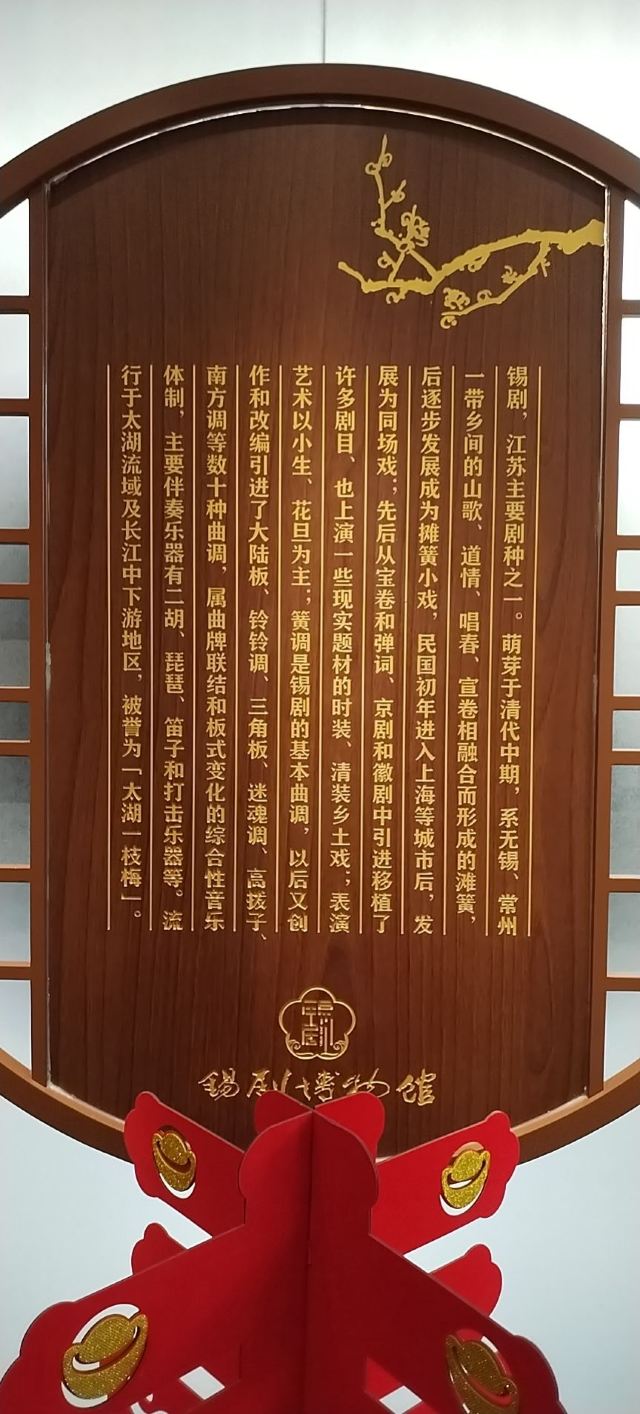 锡剧，江苏主要剧种之一。萌芽于清代中期，系无锡、常州
一带乡间的山歌、道情、唱春、宣卷相融合而形成的滩簧，
后逐步发展成为摊簧小戏，民国初年进入上海等城市后，发
展为同场戏；先后从宝卷和弹词、京剧和徽剧中引进移植了
许多剧目、也上演一些现实题材的时装、清装乡土戏；表演
艺术以小生、花旦为主；簧调是锡剧的基本曲调，以后又创
作和改编引进了大陆板、铃铃调、三角板、迷魂调、高拨子、
南方调等数十种曲调，属曲牌联结和板式变化的综合性音乐
体制，主要伴奏乐器有二胡、琵琶、笛子和打击乐器等。流
行于太湖流域及长江中下游地区，被誉为「太湖一枝梅」。
锡剧
锡剧博物馆